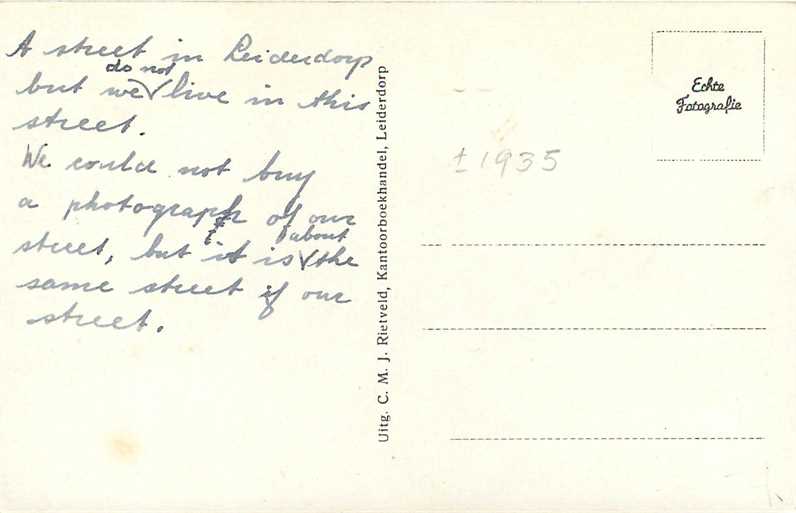 A street in Leiderdorp
but we do not live in this
street.
We could not buy
a photograph of our
street, but it is about the
same street if our
street.
Uitg. C. M. J. Rietveld, Kantoorboekhandel, Leiderdorp
Echte
Fotografie
± 1935